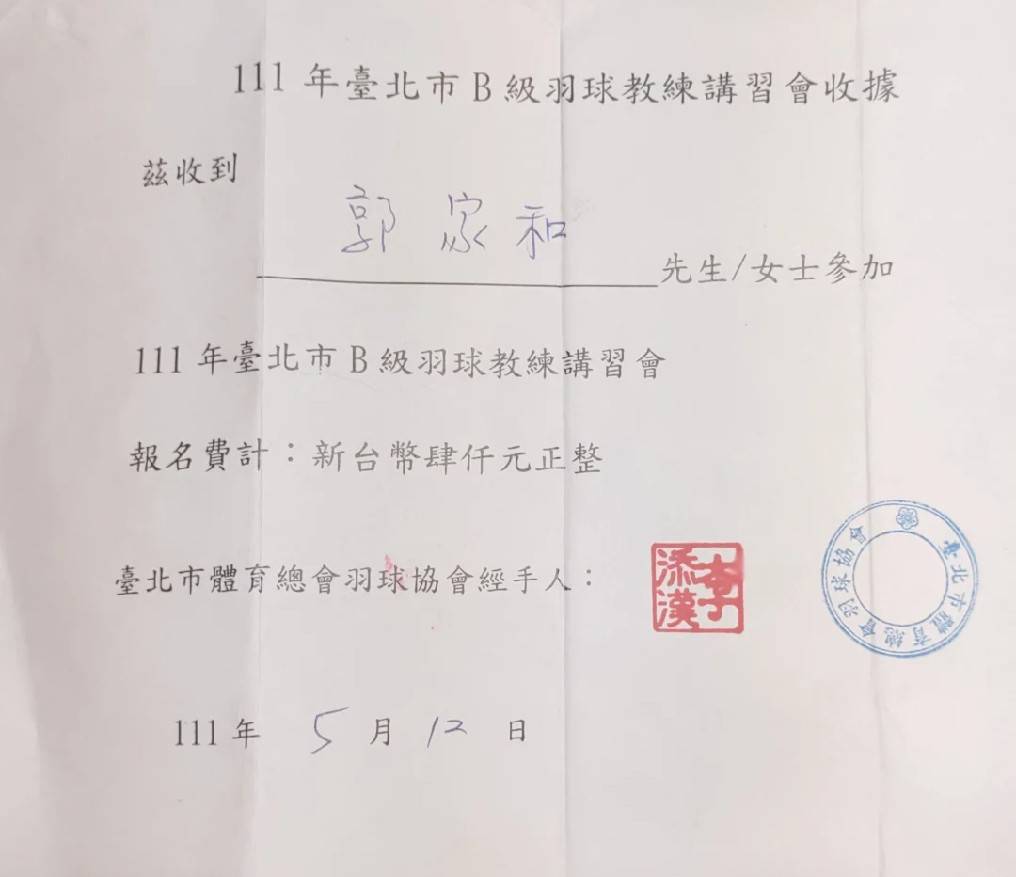 111 年臺北市 B 級羽球教練講習會收據
茲收到
郭家和
先生/女士參加
111 年臺北市 B 級羽球教練講習會
報名費計：新台幣肆仟元正整
臺北市體育總會羽球協會經手人：
李添漢
臺北市體育總會羽球協會
111 年 5 月 12 日